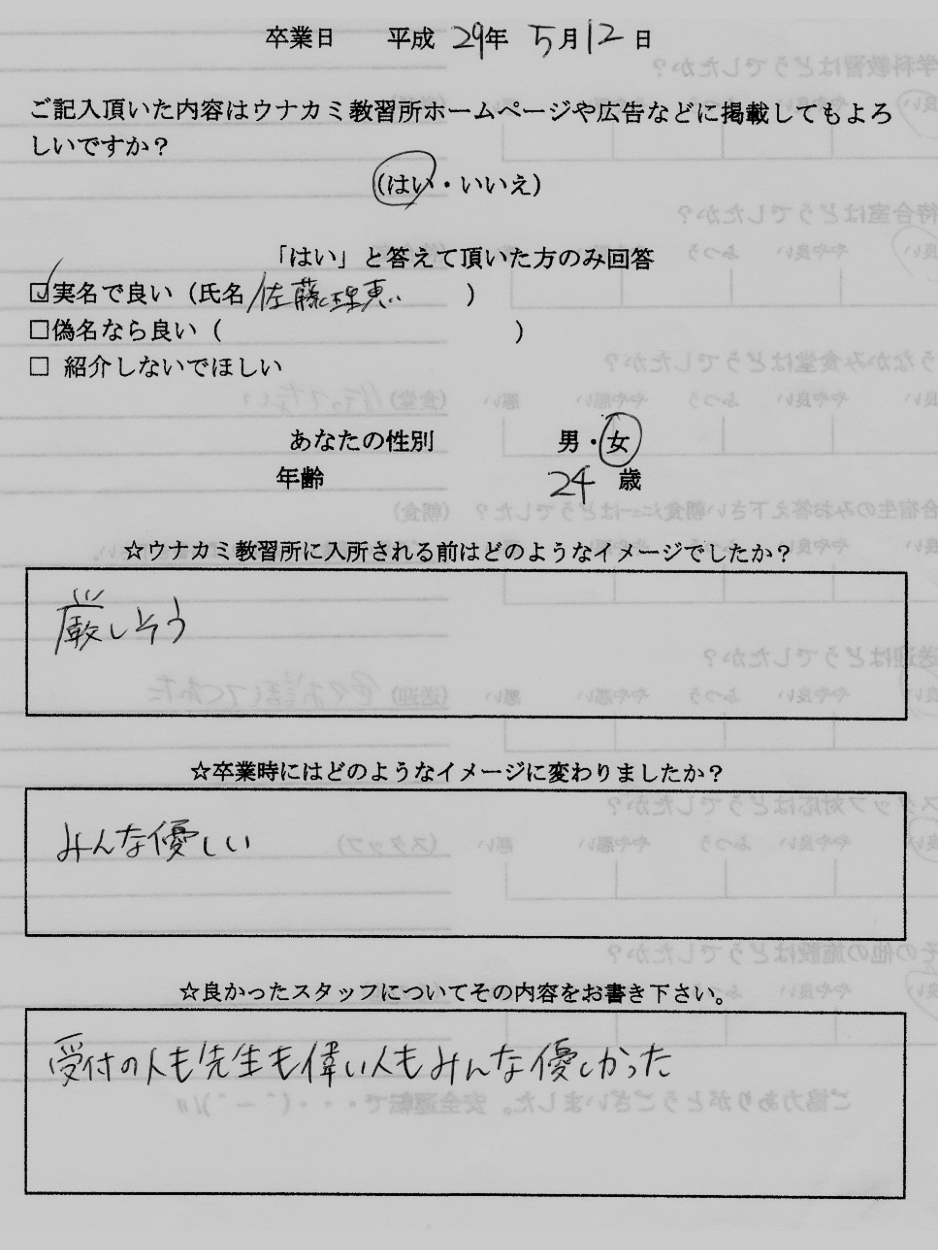 卒業日 平成 29年 5月12日
ご記入頂いた内容はウナカミ教習所ホームページや広告などに掲載してもよろ
しいですか？
(はい・いいえ)
「はい」と答えて頂いた方のみ回答
☑実名で良い（氏名 佐藤理恵 ）
□偽名なら良い（ ）
□ 紹介しないでほしい
あなたの性別 男・女
年齢 24 歳
☆ウナカミ教習所に入所される前はどのようなイメージでしたか？
厳しそう
☆卒業時にはどのようなイメージに変わりましたか？
みんな優しい
☆良かったスタッフについてその内容をお書き下さい。
受付の人も先生も偉い人もみんな優しかった